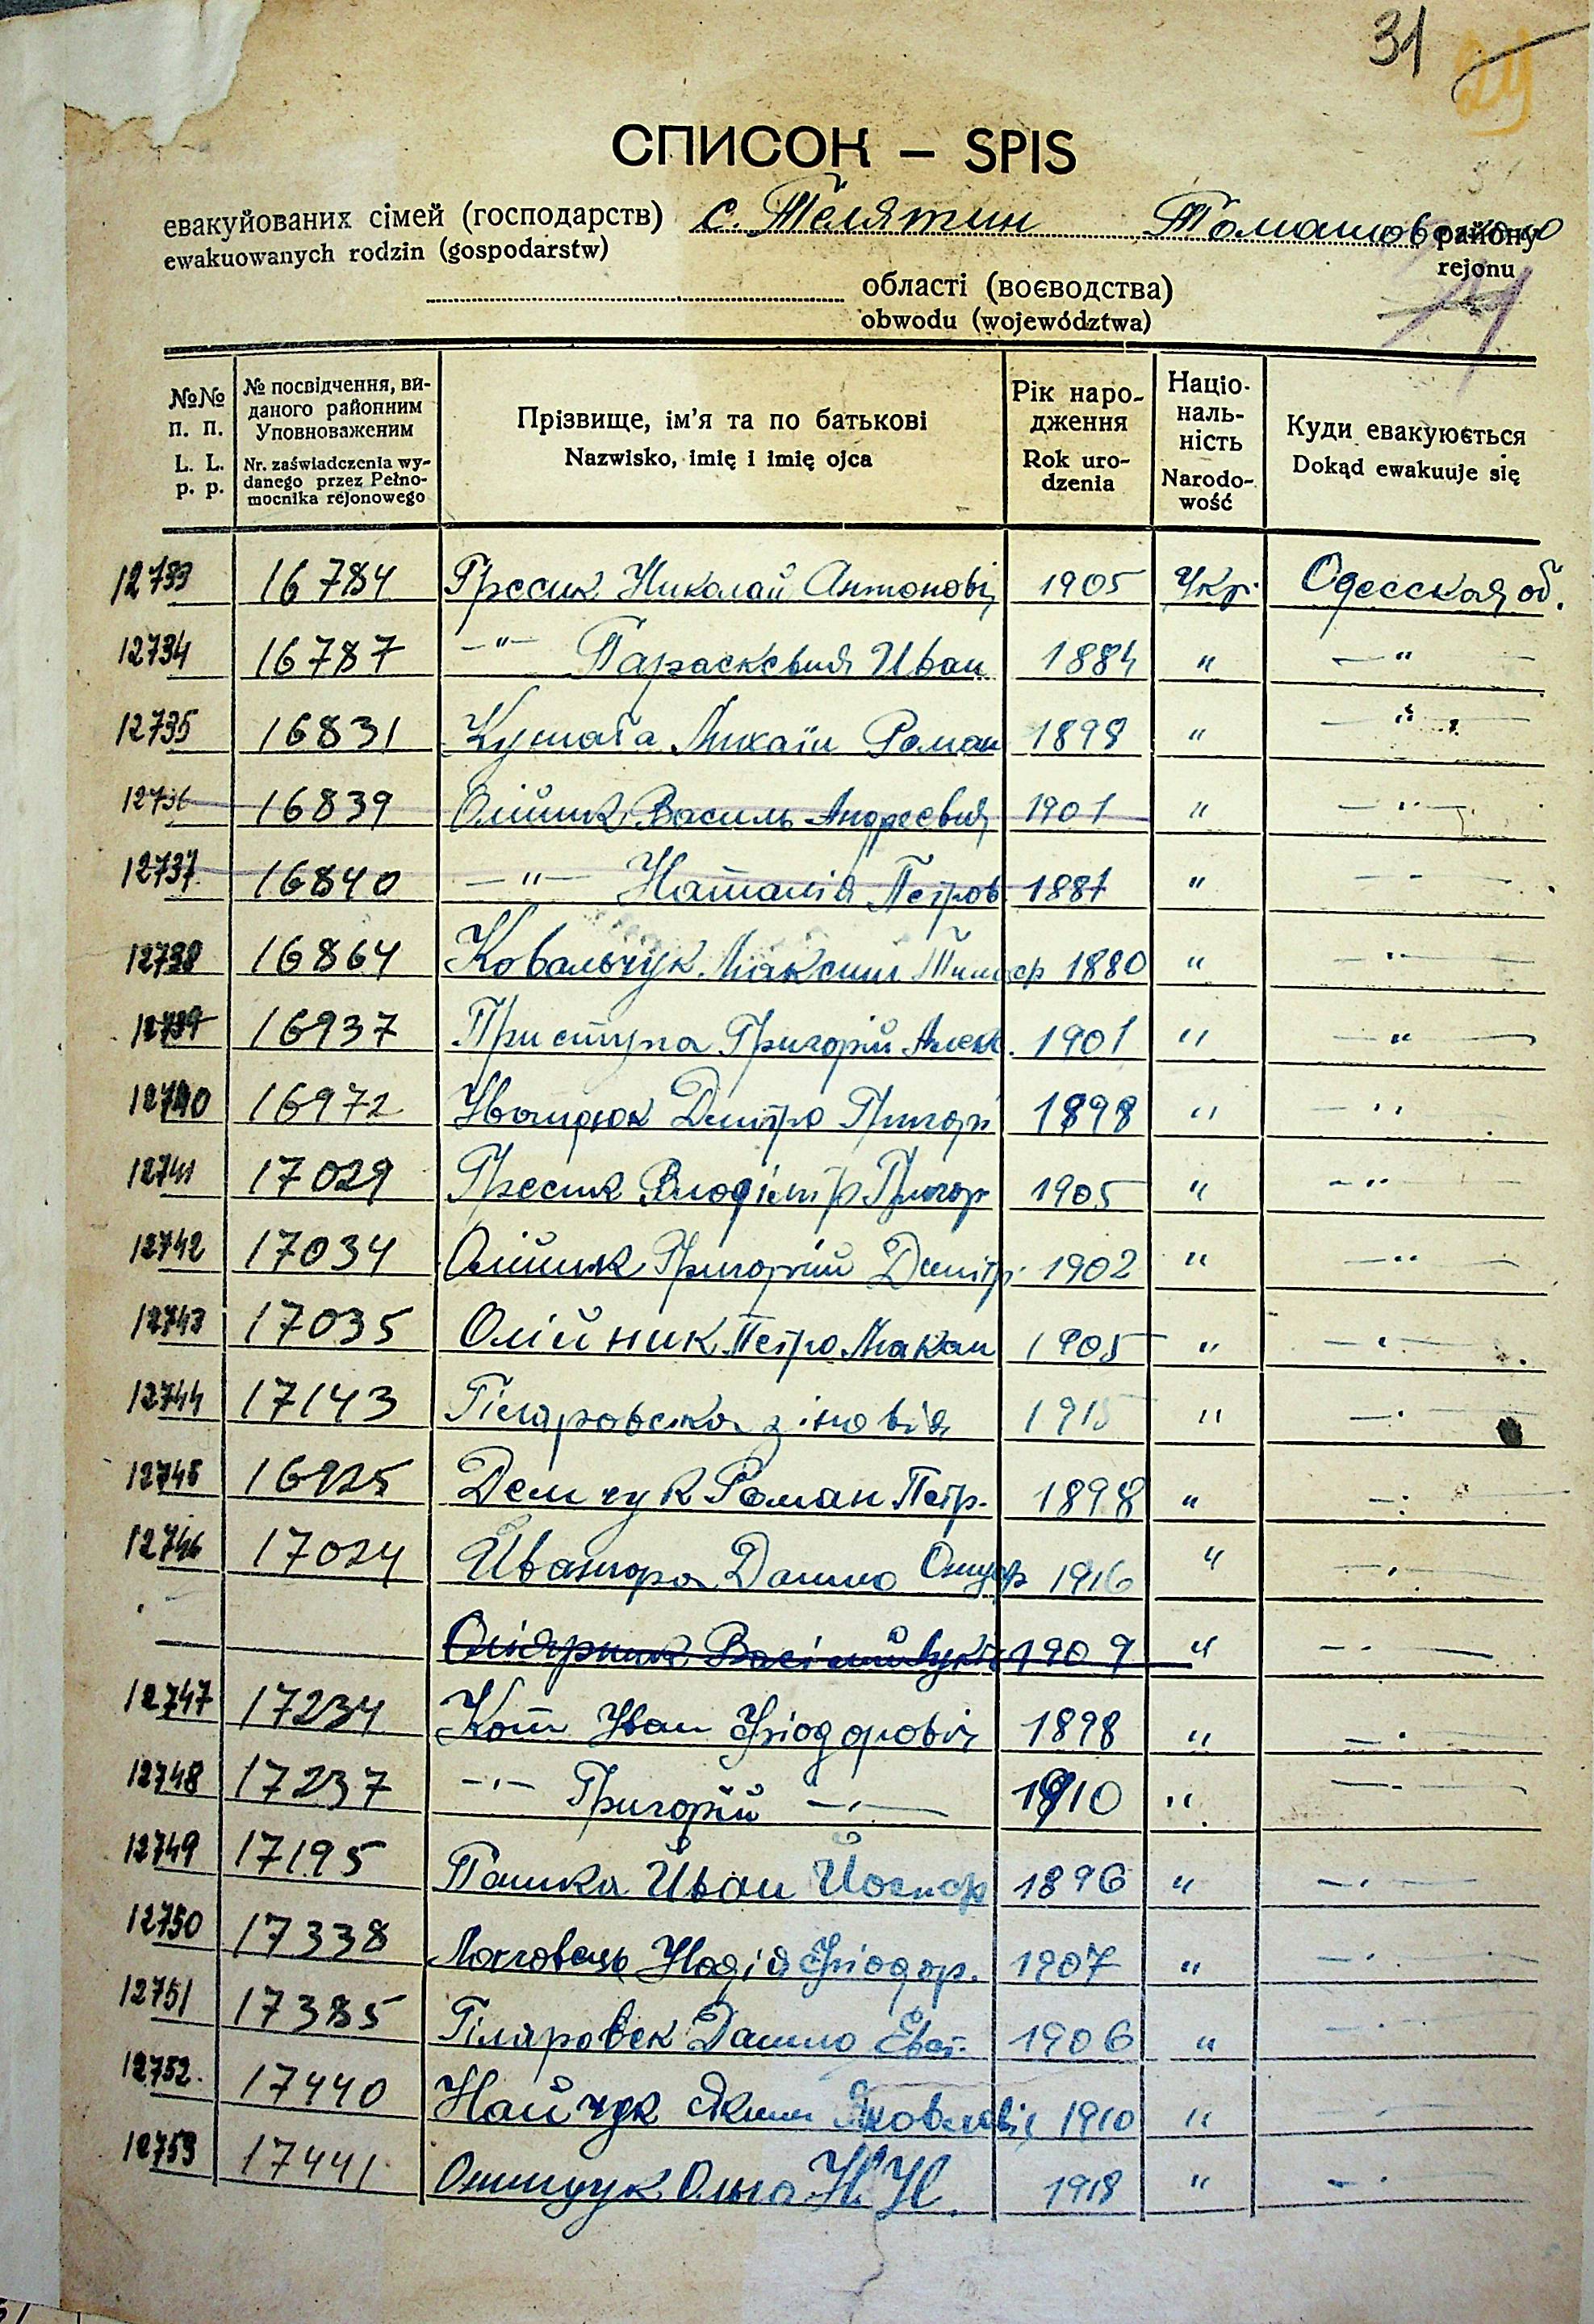 31 24
СПИСОК – SPIS
евакуйованих сімей (господарств) с. Телятин Томашовського району
ewakuowanych rodzin (gospodarstw) rejonu
області (воєводства)
obwodu (województwa)
№№ п. п. L. L. p. p. № посвідчення, виданого районним Уповноваженим Nr. zaświadczenia wydanego przez Pełnomocnika rejonowego Прізвище, ім’я та по батькові Nazwisko, imię i imię ojca Рік народження Rok urodzenia Національність Narodowość Куди евакуюється Dokąd ewakuuje się
12733 16784 Гресик Николай Антонові 1905 Укр. Одесская об.
12734 16787 —"— Параскевия Иван 1884 " —"—
12735 16831 Михаіл Роман 1898 " —"—
12736 16839 Олійник Василь Андреевия 1901 " —"—
12737 16840 —"— Наталія Петров 1887 " —"—
12738 16864 Ковальчук Максим 1880 " —"—
12739 16937 Приступа Григорій Алек. 1901 " —"—
12740 16972 Дмитро Григорі 1898 " —"—
12741 17029 Гресик Владімір Григор 1905 " —"—
12742 17034 Олійник Григорий Дмитр. 1902 " —"—
12743 17035 Олійник Петро Макам 1905 " —"—
12744 17143 Гіляровска зіновія 1915 " —"—
12745 16925 Демчук Роман Петр. 1898 " —"—
12746 17024 Данило 1916 " —"—
1909 " —"—
12747 17234 Кот Иван Фіодорович 1898 " —"—
12748 17237 —"— Григорій —"— 1910 " —"—
12749 17195 Пашка Иван Йосиф 1896 " —"—
12750 17338 Надія Фіодор. 1907 " —"—
12751 17385 Гіляровск Данило Евст. 1906 " —"—
12752 17440 Найчук Яким Яковлевіч 1910 " —"—
12753 17441 Онищук Ольга Н. Н. 1918 " —"—